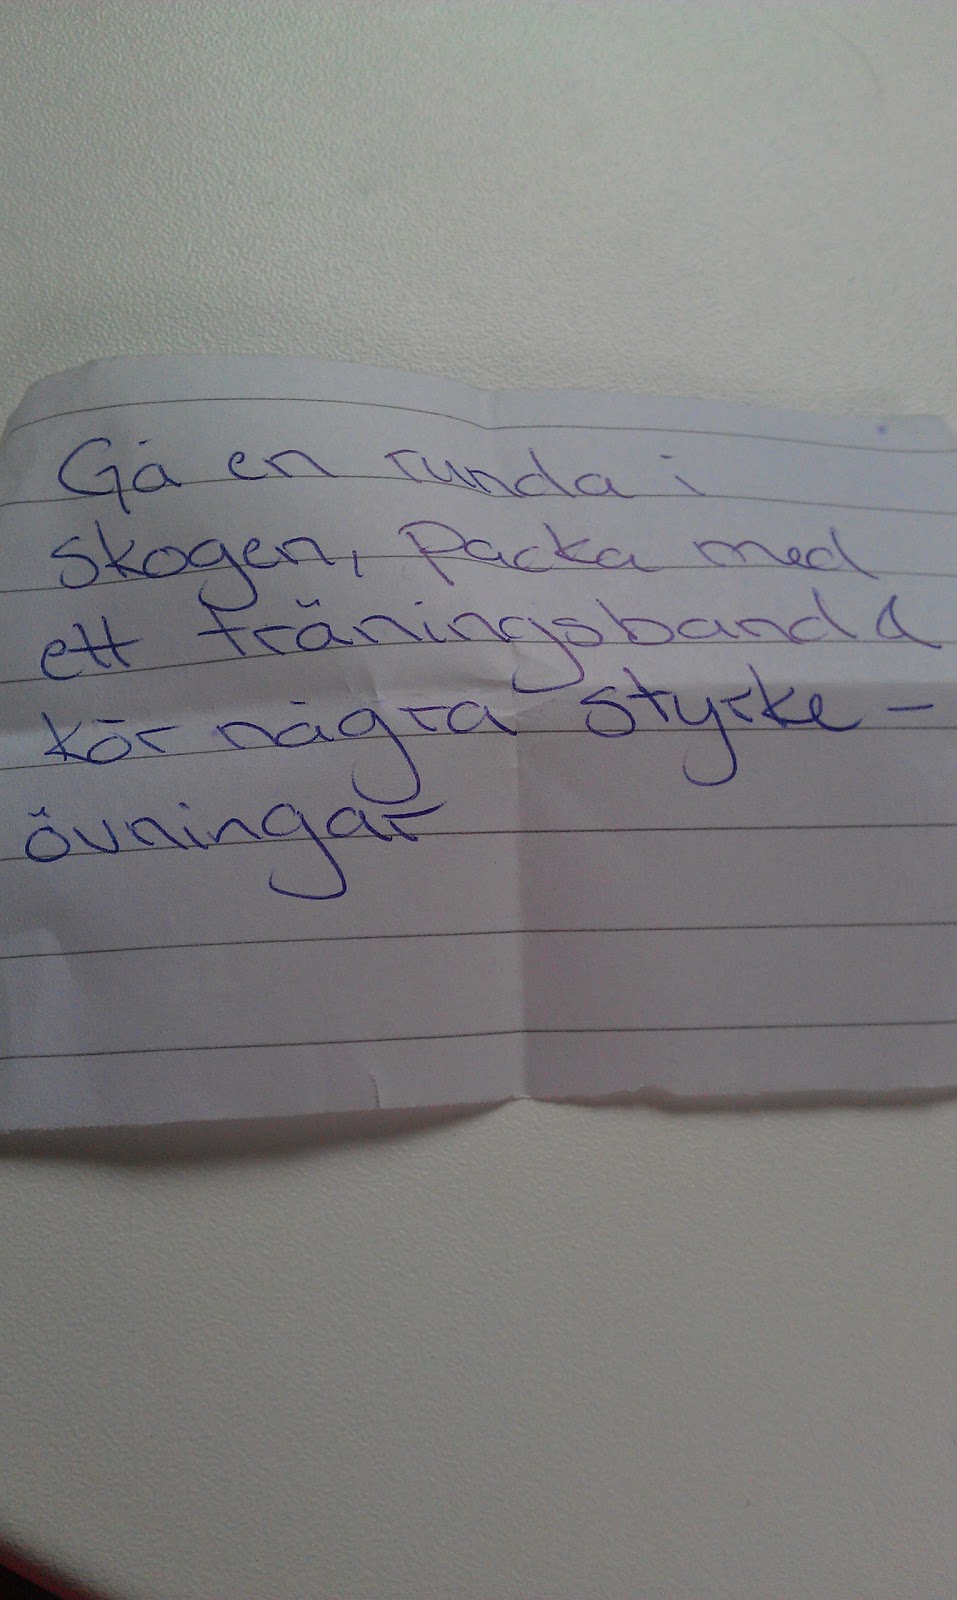 Gå en runda i
skogen, packa med
ett träningsband &
kör några styrke-
övningar